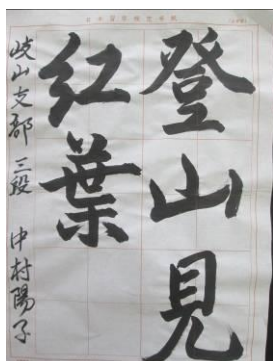 登山見
紅葉
岐山支部 三段 中村陽子